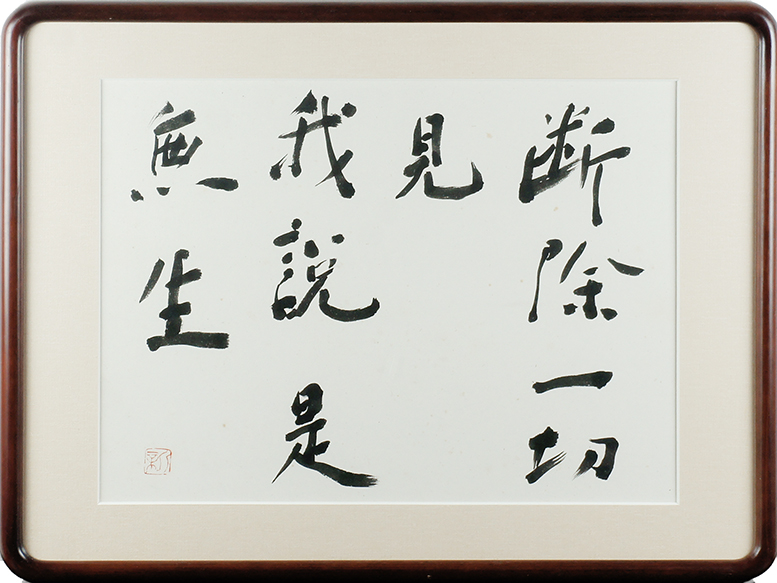 断除一切
見
我說是
無生